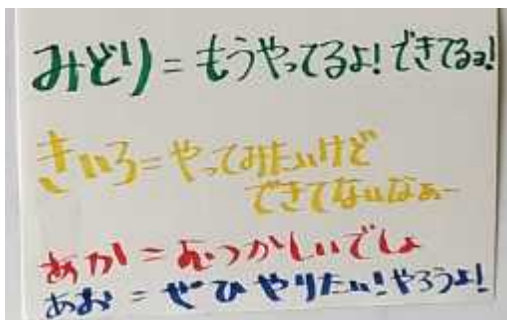 みどり=もうやってるよ!できてるよ!
きいろ=やってみたいけど
できてないなぁー
あか=むつかしいでしょ
あお=ぜひやりたい!やろうよ!